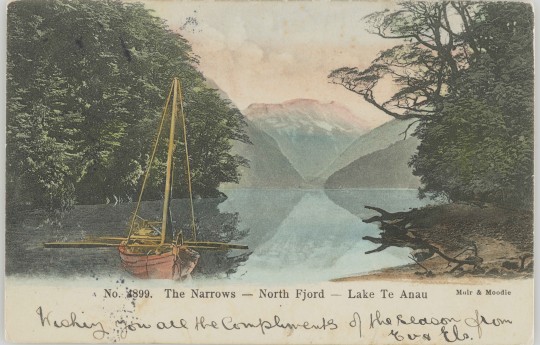 No. 4899. The Narrows — North Fjord — Lake Te Anau
Muir & Moodie
Wishing you all the Compliments of the season from